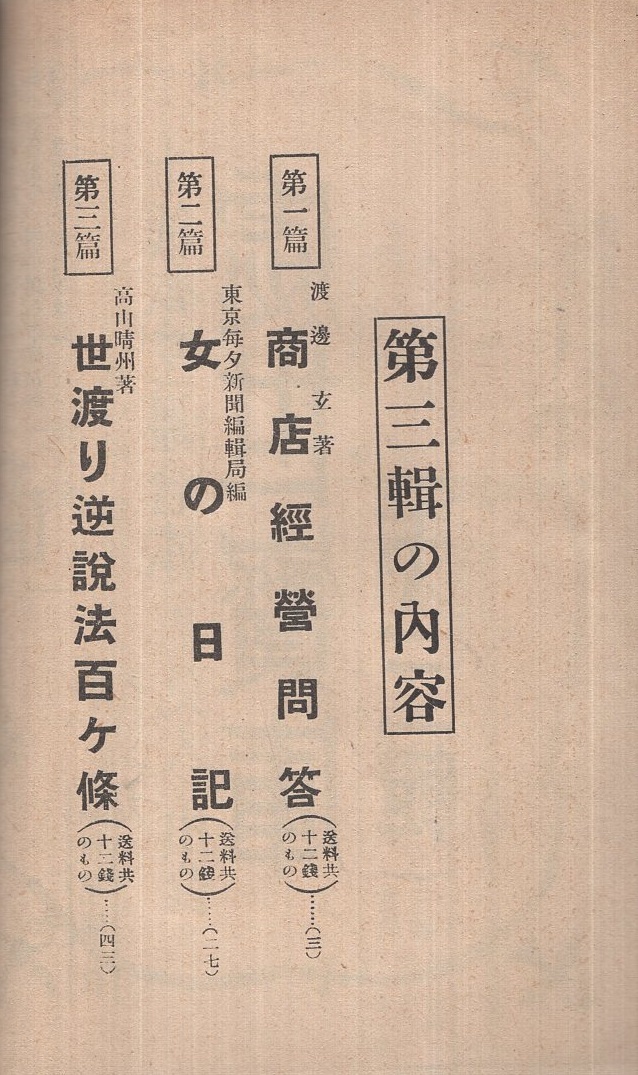 第三輯の內容
第一篇
渡邊玄著
商店經營問答
(送料共
十二錢
のもの)……(三)
第二篇
東京每夕新聞編輯局編
女の日記
(送料共
十二錢
のもの)……(二七)
第三篇
高山晴州著
世渡り逆說法百ケ條
(送料共
十二錢
のもの)……(四三)